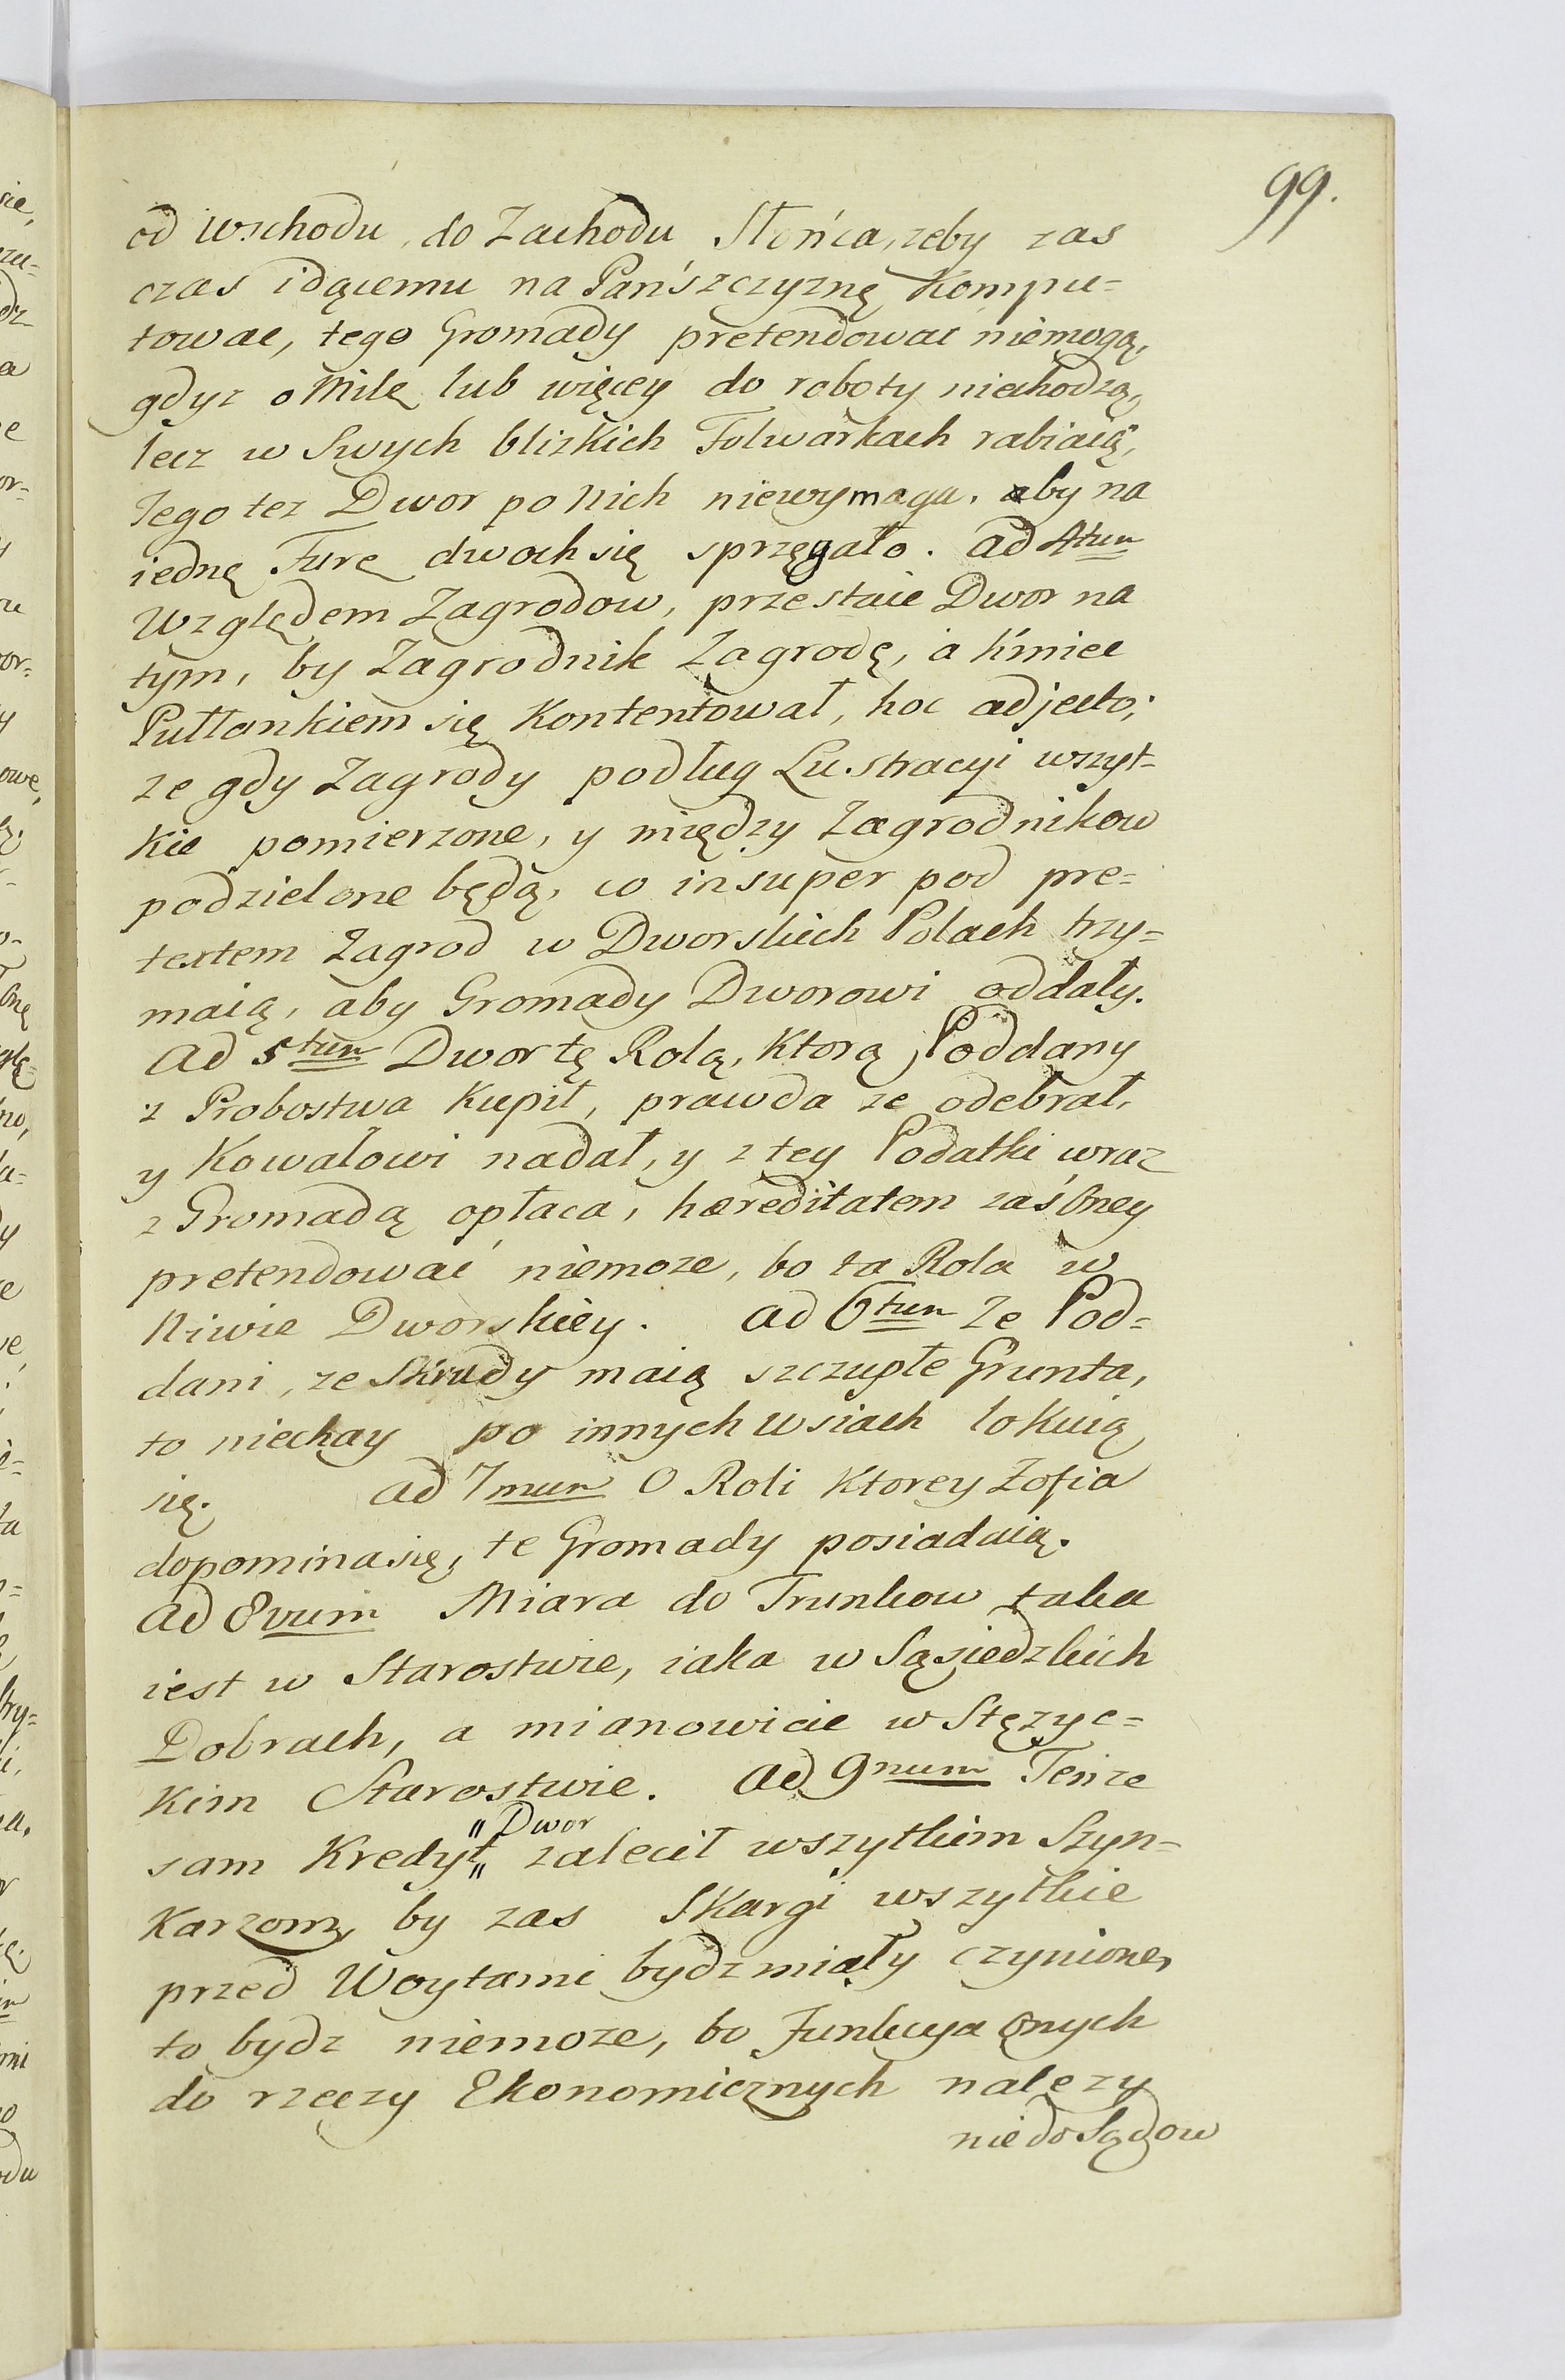 99.
od wschodu, do Zachodu Słońca, zeby zas
czas idącemu na Pańszczyznę Kompu=
towac, tego Gromady pretendowac niemogą,
gdyz o Milę lub więcey do roboty niechodzą,
lecz w Swych blizkich Folwarkach rabiaią,
Tego tez Dwor po Nich niewymaga, aby na
iednę Furę dwoch się sprzęgało. ad 4tum
Względem Zagrodow, przestaie Dwor na
tym, by Zagrodnik Zagrodę, a Kmiec
Pułłankiem się Kontentował, hoc adjecto;
ze gdy Zagrody podług Lustracyi wszyt=
kie pomierzone, y między Zagrodnikow
podzielone będą, co insuper pod pre=
textem Zagrod w Dworskich Polach trzy=
maią, aby Gromady Dworowi oddały.
Ad 5tum Dwor tę Rolą, Ktorą Poddany
z Probostwa Kupił, prawda ze odebrał,
y Kowalowi nadał, y z tey Podatki wraz
z Gromadą opłaca, hæreditatem zaś Oney
pretendowac niemoze, bo ta Rola w
Niwie Dworskiey. ad 6tum Ze Pod=
dani, ze Skrudy maią szczupłe Grunta,
to niechay po innych wsiach lokuią
się. ad 7mum O Roli Ktorey Zofia
dopomina się, te Gromady posiadaią.
Ad 8vum Miara do Trunkow taka
iest w Starostwie, iaka w Sąsiedzkich
Dobrach, a mianowicie w Stęzyc=
kim Starostwie. ad 9num Tenze
sam Kredyt "Dwor" zalecił wszytkim Szyn=
karzom, by zas Skargi wszytkie
przed Woytami bydz miały czynione,
to bydz niemoze, bo Funkcya Onych
do rzeczy Ekonomicznych nalezy
nie do Sądow